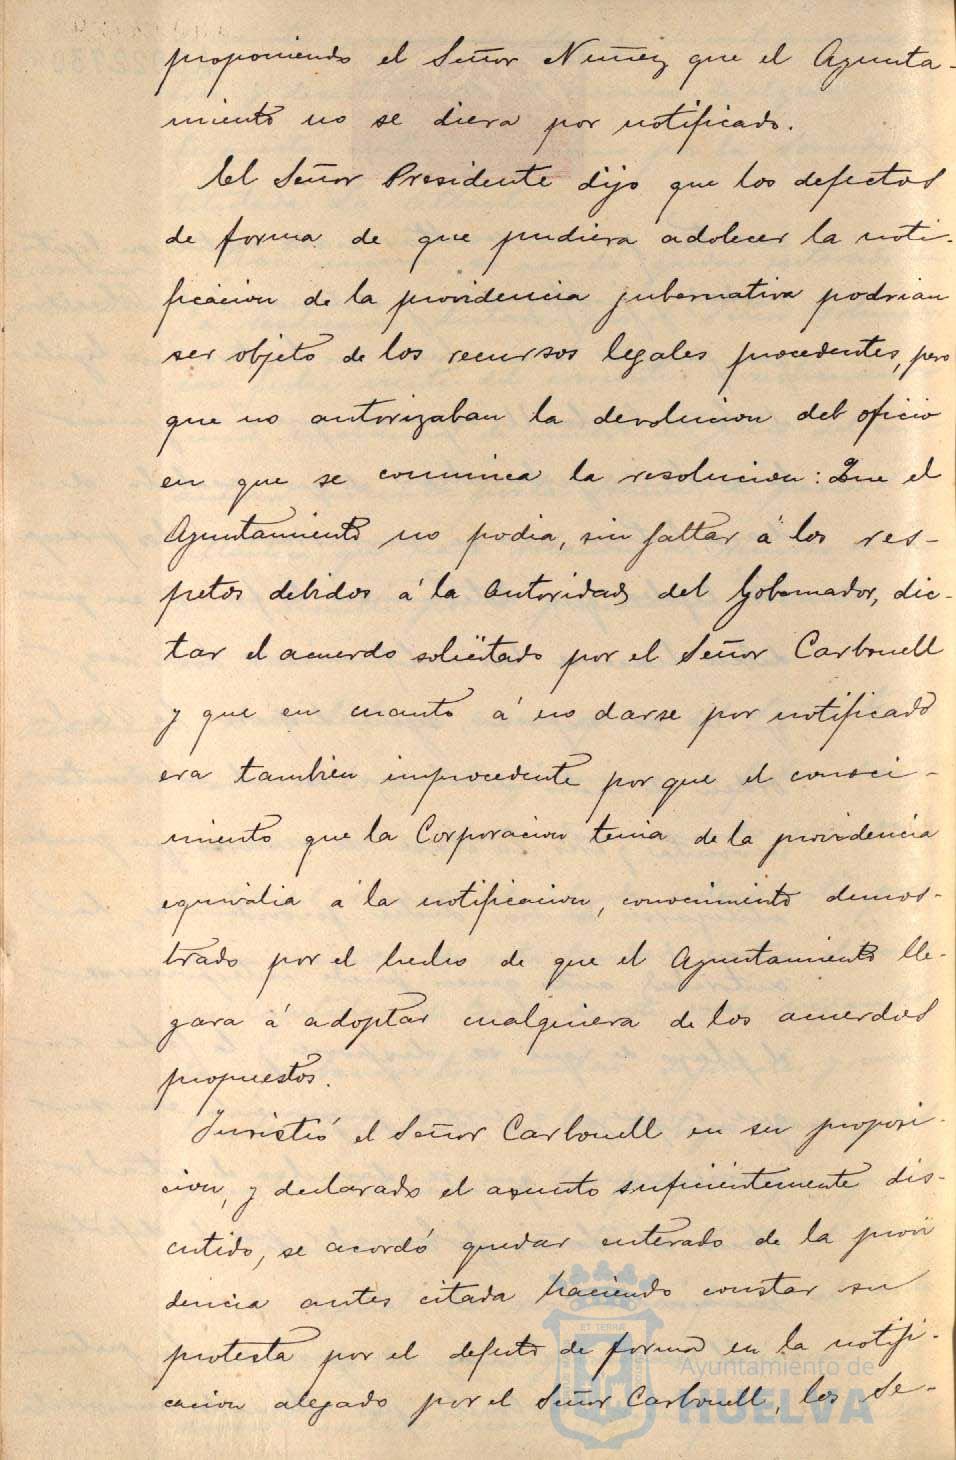 proponiendo el Señor Nuñez que el Ayunta-
miento no se diera por notificado.
El Señor Presidente dijo que los defectos
de forma de que pudiera adolecer la noti-
ficacion de la providencia gubernativa podrian
ser objeto de los recursos legales procedentes, pero
que no autorizaban la devolucion del oficio
en que se comunica la resolucion: Que el
Ayuntamiento no podia, sin faltar á los res-
petos debidos á la autoridad del Gobernador, dic-
tar el acuerdo solicitado por el Señor Carbonell
y que en cuanto á no darse por notificado
era tambien improcedente por que el conoci-
miento que la Corporacion tenia de la providencia
equivalia á la notificacion, conocimiento demos-
trado por el hecho de que el Ayuntamiento lle-
gara á adoptar cualquiera de los acuerdos
propuestos.
Insistió el Señor Carbonell en su proposi-
cion, y declarado el asunto suficientemente dis-
cutido, se acordó quedar enterado de la provi
dencia antes citada haciendo constar su
protesta por el defecto de forma en la notifi-
cacion alegado por el Señor Carbonell, los Se-
ET TERRA
Ayuntamiento de
HUELVA